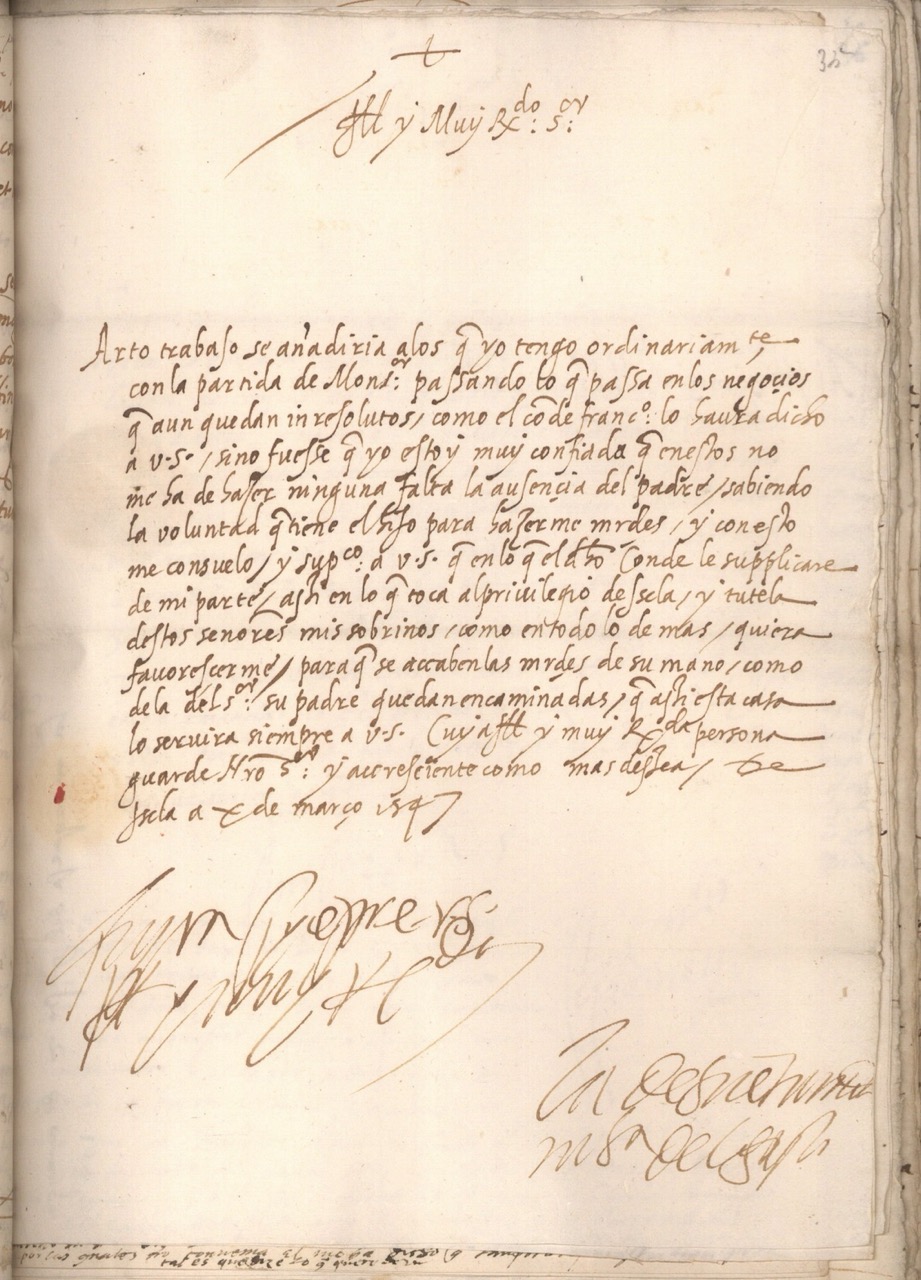 +
32
Ill y Muy Rdo: sor:
Arto trabajo se añadiria alos q̃ yo tengo ordinariamte,
con la partida de Monsor: passando lo q̃ passa en los negoçios
q̃ aun quedan inresolutos, como el cõde franco: lo haura dicho
a v.s., sino fuesse q̃ yo estoy muy confiada q̃ enestos no
me ha de hazer ninguna falta la ausençia del padre, sabiendo
la voluntad q̃ tiene el hijo para hazerme mrdes, y con esto
me consuelo, y supco: a v.s. q̃ en lo q̃ el dho Conde le supplicare
de mi parte, assi en lo q̃ toca al priuilegio de Iscla, y tutela
destos señores mis sobrinos, como en todo lo de mas, quiera
fauorescerme, para q̃ se accaben las mrdes de su mano, como
de la del sor: su padre quedan encaminadas, q̃ assi esta casa
lo seruira siempre a v.s. Cuya Ill y muy Rda persona
guarde Nro sor: y accresciente como mas dessea, De
Iscla a X de março 1547
a
siempre v.s.
y muy R
la
del